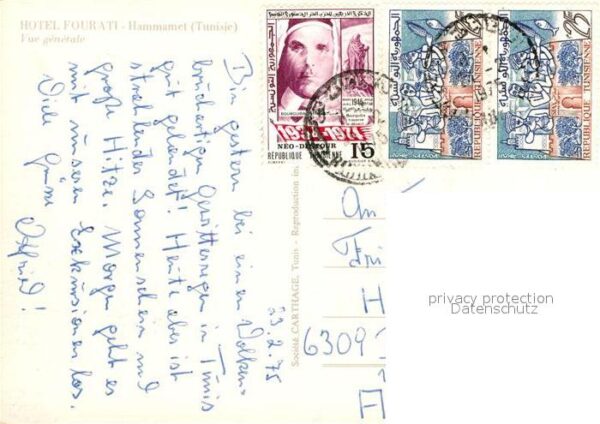 HOTEL FOURATI - Hammamet (Tunisie)
Vue générale
23.2.75
Bin gestern bei einem Wolken-
bruchartigen Gewitterregen in Tunis
gut gelandet! Heute aber ist
strahlender Sonnenschein und
große Hitze. Morgen geht es
mit unseren Exkursionen los.
Viele Grüße
Société CARTHAGE, Tunis - Reproduction in
An
6309
NEO-DESTOUR
15
REPUBLIQUE TUNISIENNE
25
REPUBLIQUE TUNISIENNE
25
REPUBLIQUE TUNISIENNE
privacy protection
Datenschutz